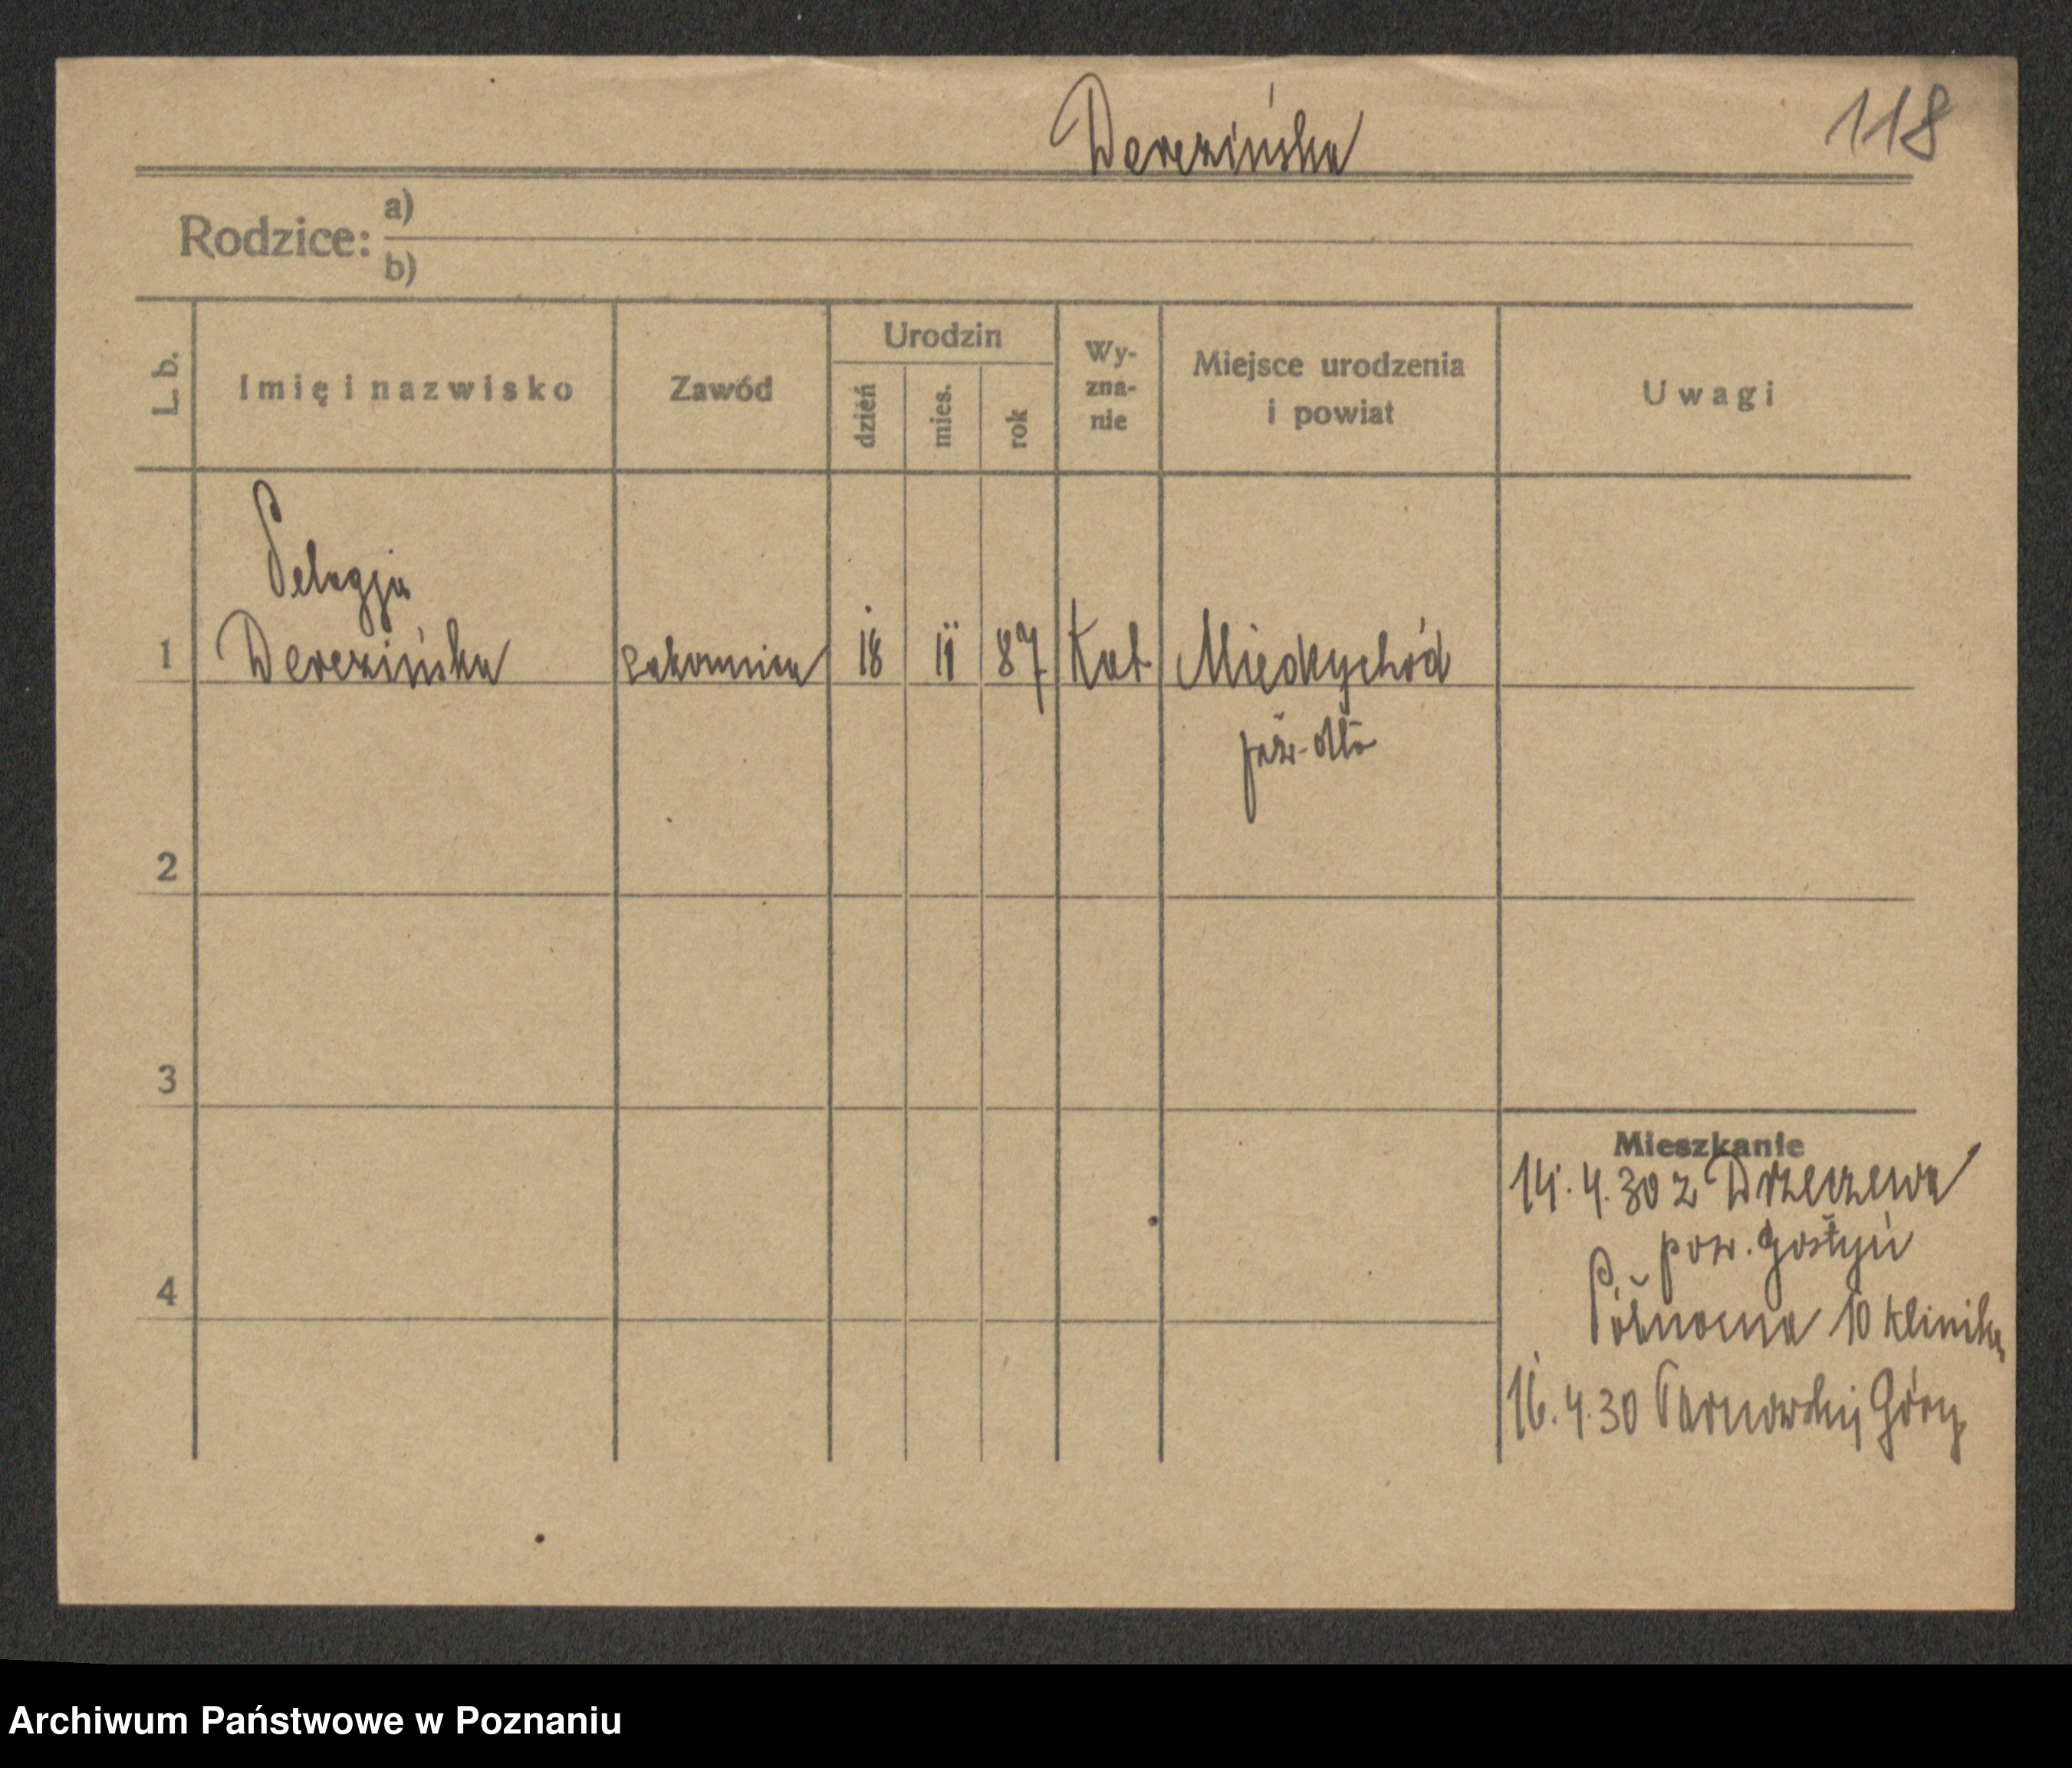 Derezińska
118
Rodzice: a)
b)
L. b.
Imię i nazwisko
Zawód
Urodzin
dzień
mies.
rok
Wy-
zna-
nie
Miejsce urodzenia
i powiat
Uwagi
Pelagja
1 Derezińska zakonnica 18 11 87 Kat Międzychód
pow. dtto
2
3
4
Mieszkanie
14.4.30 z Drzeczewa
pow. Gostyń
Północna 10 klinika
16.4.30 Tarnowskij Góry
Archiwum Państwowe w Poznaniu